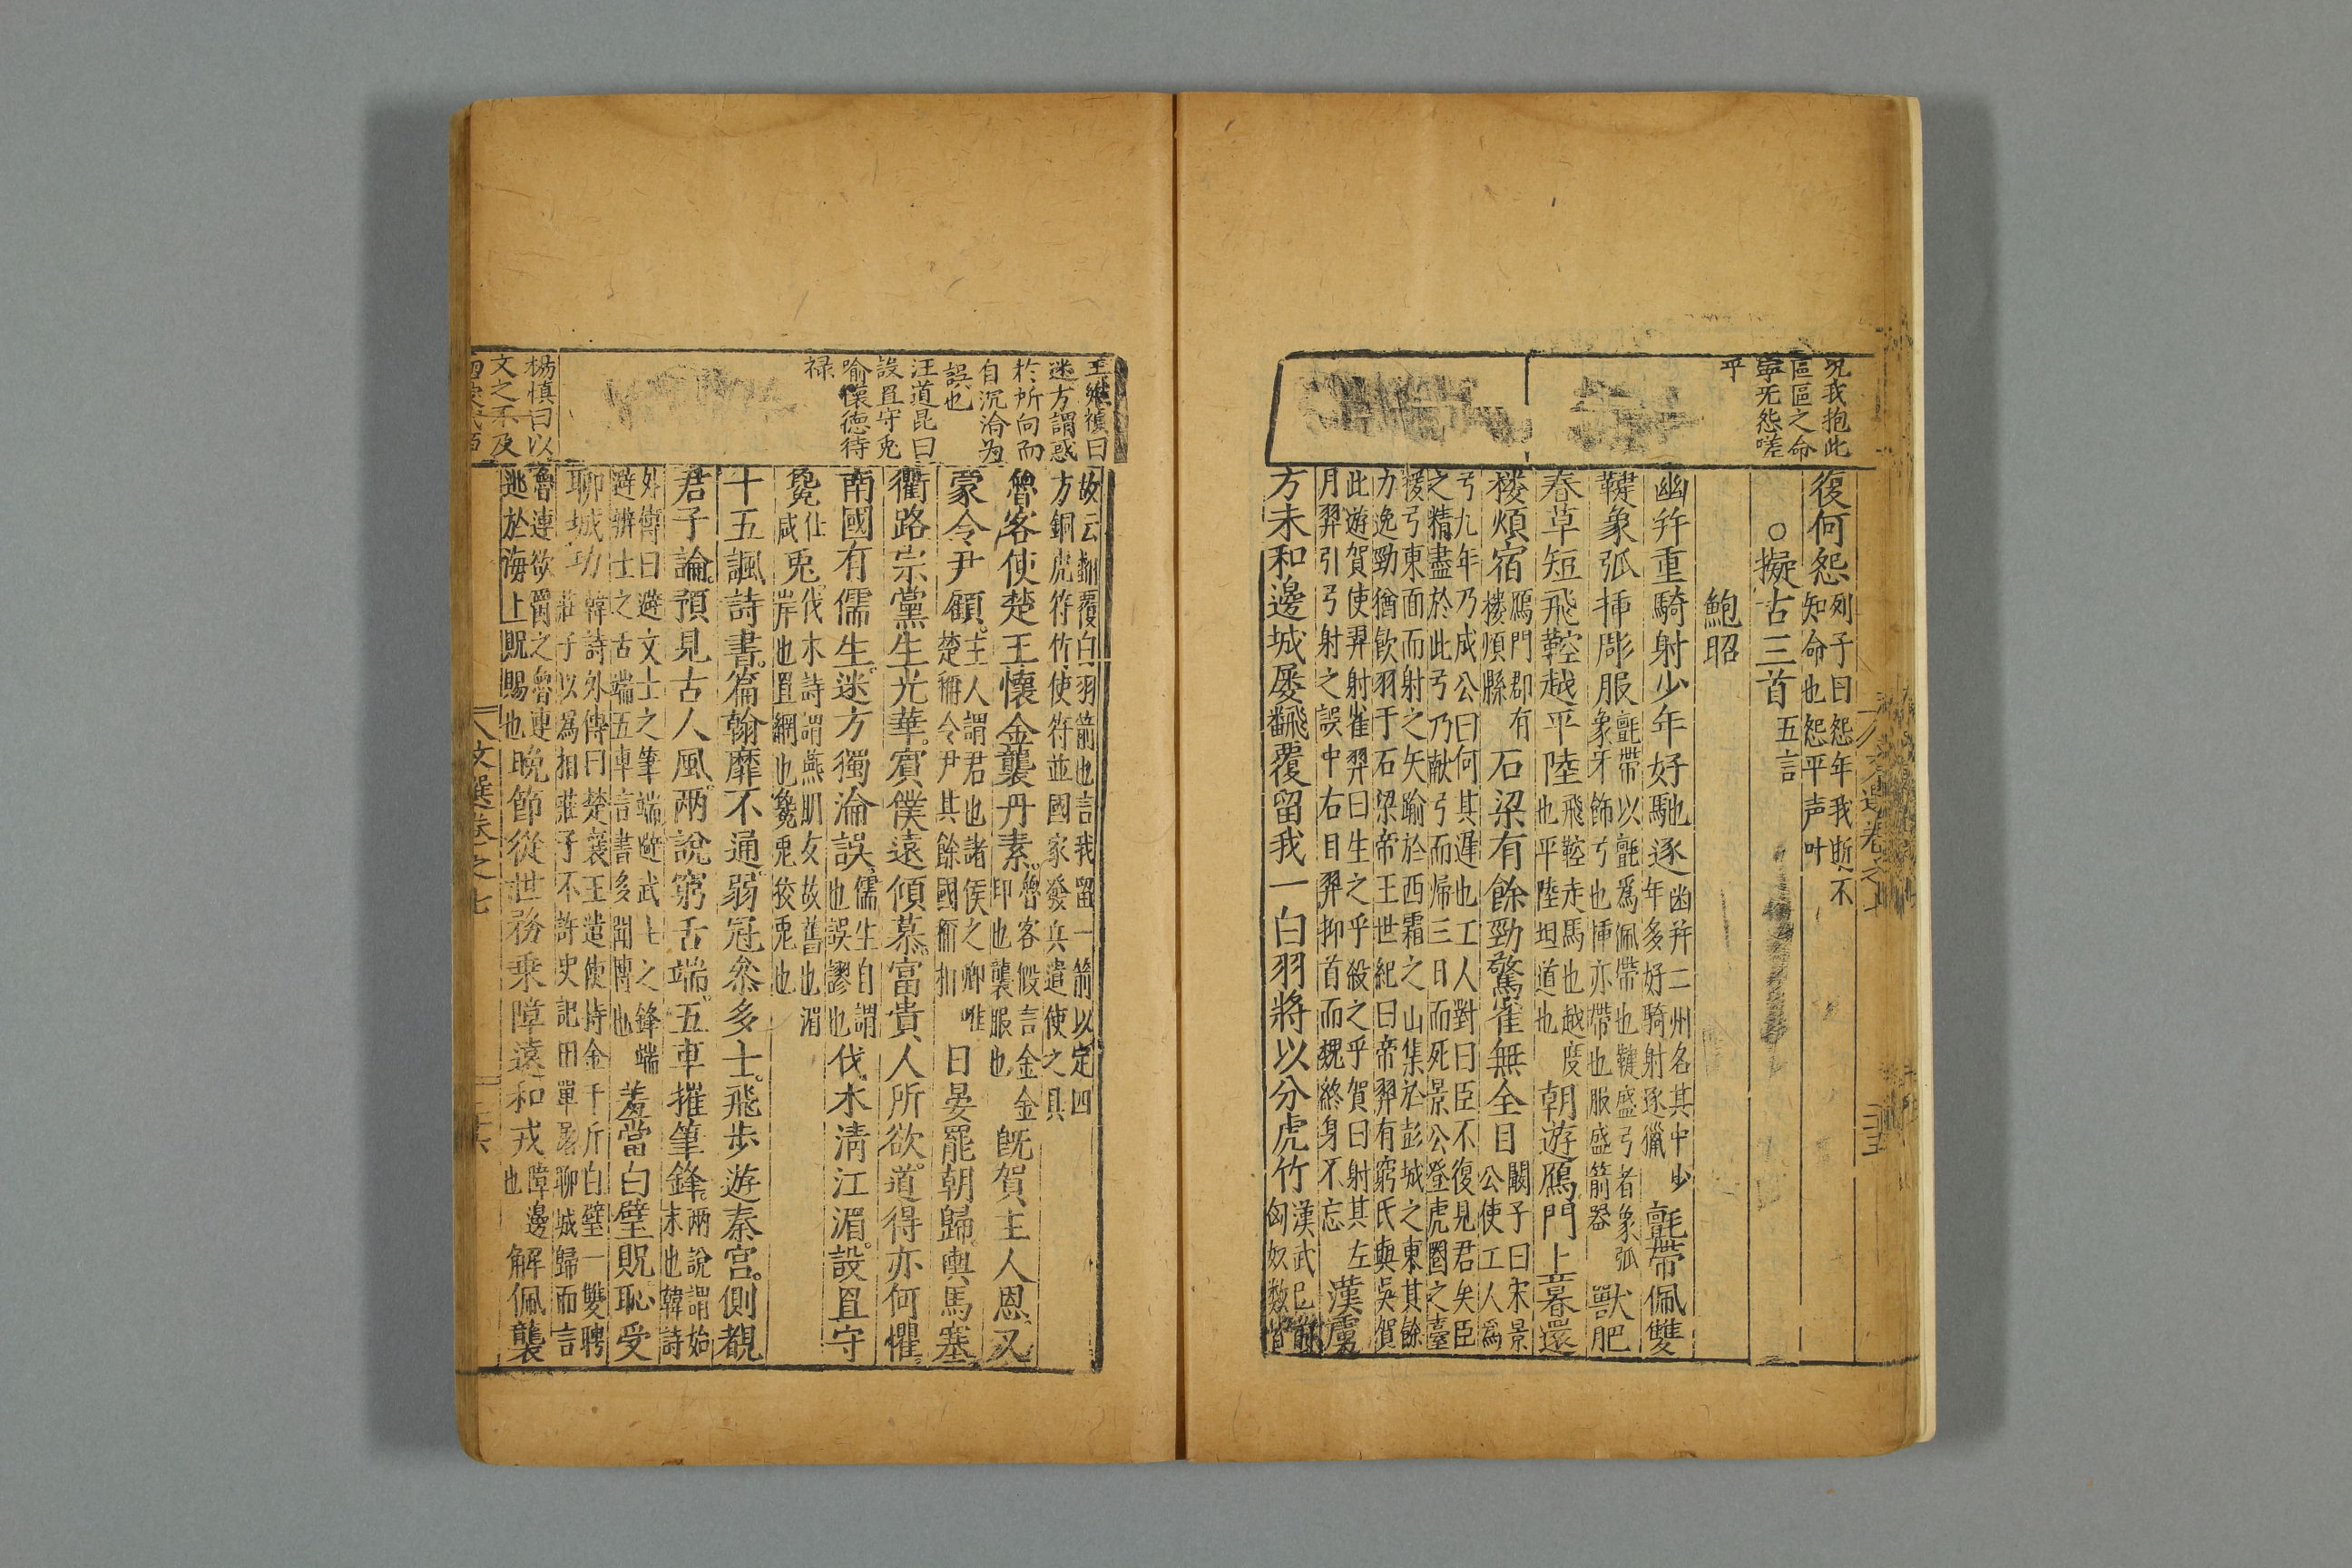 况我抱此
區區之命
寧无怨嗟
乎
復何怨列子曰怨年我逝不
知命也怨平声叶
○擬古三首五言
鮑昭
幽并重騎射少年好馳逐幽并二州名其中少
年多好騎射逐獵氈帶佩雙
鞬象弧挿彫服氈帶以氈爲佩帶也鞬盛弓者象弧
象牙飾弓也挿亦帶也服盛箭器獸肥
春草短飛鞚越平陸飛鞚走馬也越度
也平陸坦道也朝遊鴈門上暮還
楼煩宿鴈門郡有
楼煩縣石梁有餘勁驚雀無全目闞子曰宋景
公使工人爲
弓九年乃成公曰何其遲也工人對曰臣不復見君矣臣
之精盡於此弓乃献弓而帰三日而死景公登虎圈之臺
援弓東面而射之矢踰於西霜之山集於彭城之東其餘
力逸勁猶飲羽于石梁帝王世紀曰帝羿有窮氏與吳賀
此遊賀使羿射雀羿曰生之乎殺之乎賀曰射其左
月羿引弓射之誤中右目羿抑首而愧終身不忘漢虜
方未和邊城屡飜覆留我一白羽將以分虎竹漢武已前
匈奴数背
王維禎曰
迷方謂惑
於所向而
自沉洽为
誤也
汪道昆曰
設罝守兎
喻懷德待
禄
楊慎曰以
文之不及
故云翻覆白羽箭也言我留一箭以定四
方銅虎符竹使符並國家發兵遣使之具
魯客使楚王懷金襲丹素魯客假言金金
印也襲服也既賀主人恩又
蒙令尹顧主人謂君也諸侯之卿唯
楚稱令尹其餘國稱相日晏罷朝歸輿馬塞
衢路宗黨生光華賔僕遠傾慕富貴人所欲道得亦何懼
南國有儒生迷方獨淪誤儒生自謂
也誤謬也伐木清江湄設罝守
毚仕
咸兎伐木詩謂燕朋友故舊也湄
岸也罝網也毚兎狡兎也
十五諷詩書篇翰靡不通弱冠叅多士飛步遊秦宫側覩
君子論預見古人風兩說窮舌端五車摧筆鋒兩說謂始
末也韓詩
外傳曰避文士之筆端避武士之鋒端
避辨士之舌端五車言書多聞博也羞當白璧貺恥受
聊城功韓詩外傳曰楚襄王遣使持金千斤白璧一雙聘
莊子以為相莊子不許史記田單屠聊城歸而言
魯連欲爵之魯連
逃於海上貺賜也晩節從世務乗障遠和戎障邊
也解佩襲
文選卷之七